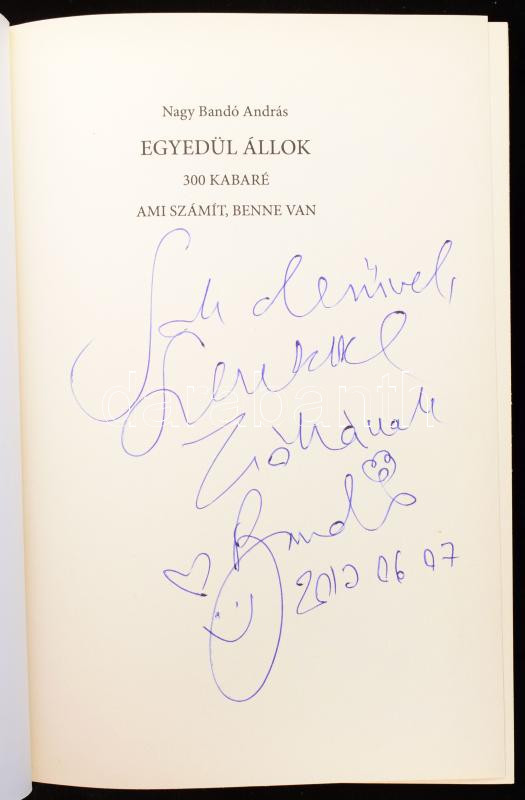 Nagy Bandó András
EGYEDÜL ÁLLOK
300 KABARÉ
AMI SZÁMÍT, BENNE VAN
Sok derűvel,
Bandó
2012 06 07
darabanth